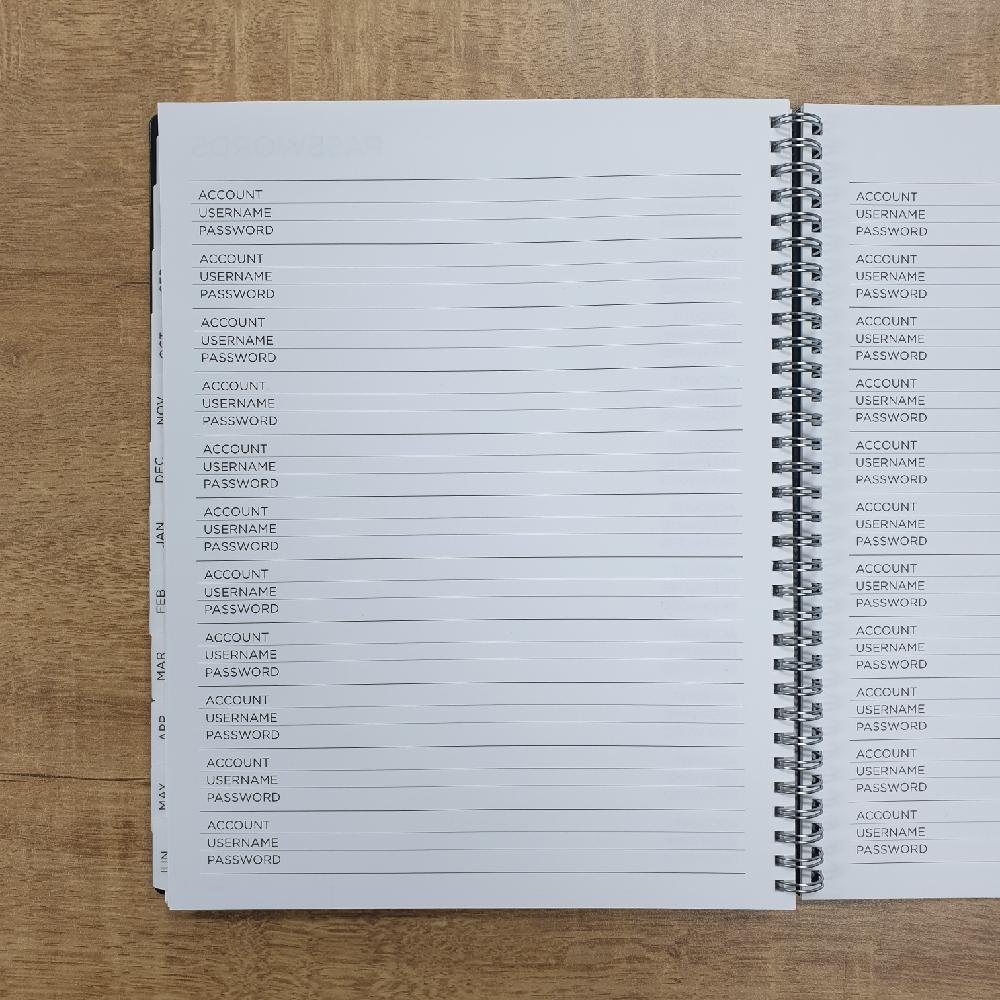 NOV
DEC
JAN
FEB
MAR
APR
MAY
ACCOUNT
USERNAME
PASSWORD
ACCOUNT
USERNAME
PASSWORD
ACCOUNT
USERNAME
PASSWORD
ACCOUNT
USERNAME
PASSWORD
ACCOUNT
USERNAME
PASSWORD
ACCOUNT
USERNAME
PASSWORD
ACCOUNT
USERNAME
PASSWORD
ACCOUNT
USERNAME
PASSWORD
ACCOUNT
USERNAME
PASSWORD
ACCOUNT
USERNAME
PASSWORD
ACCOUNT
USERNAME
PASSWORD
ACCOUNT
USERNAME
PASSWORD
ACCOUNT
USERNAME
PASSWORD
ACCOUNT
USERNAME
PASSWORD
ACCOUNT
USERNAME
PASSWORD
ACCOUNT
USERNAME
PASSWORD
ACCOUNT
USERNAME
PASSWORD
ACCOUNT
USERNAME
PASSWORD
ACCOUNT
USERNAME
PASSWORD
ACCOUNT
USERNAME
PASSWORD
ACCOUNT
USERNAME
PASSWORD
ACCOUNT
USERNAME
PASSWORD